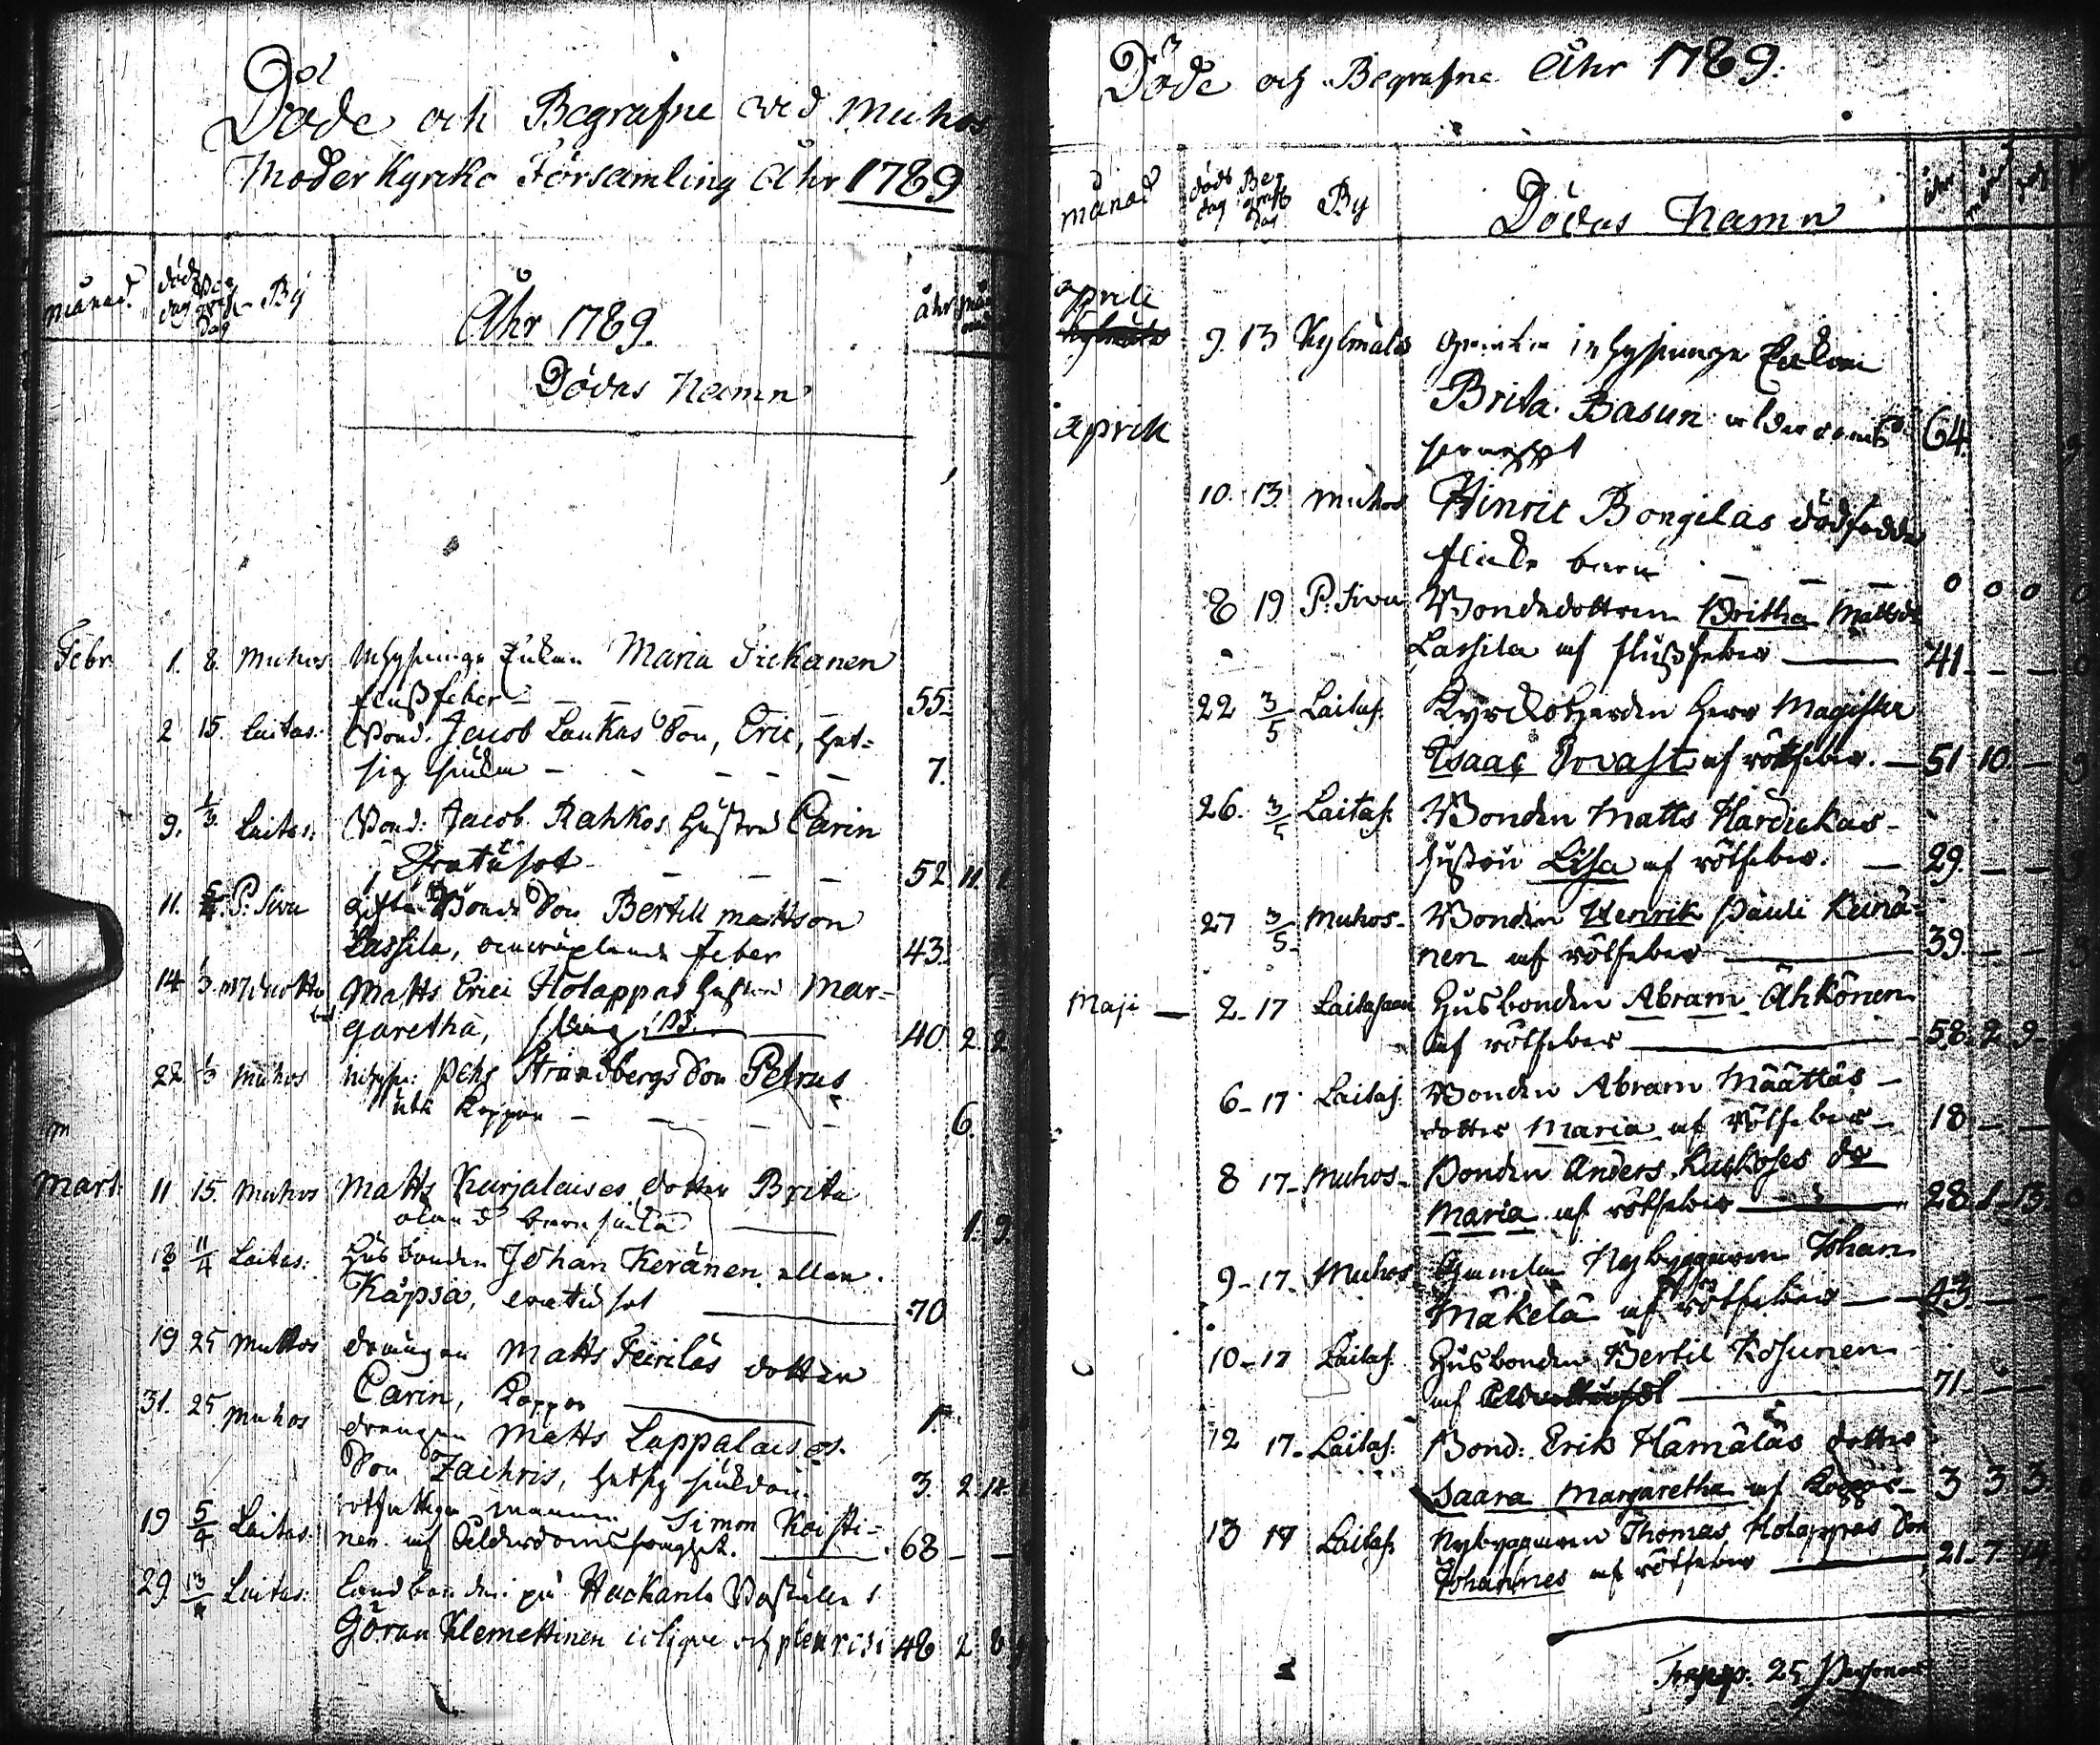 Döde och Begrafne wid Muhos
Moder Kyrko Församling Åhr 1789
månad döds dag Begrafn Dag By Åhr 1789. åhr
Dödas Namn
Febr. 1. 8. Muhos Inhysinge Enkan Maria Tickanen
flussfeber 55.
2 15. Laitas: Bond: Jacob Laukas Son, Eric, het=
sig siuka 7.
9. 1/3 Laitas: Bond: Jacob Rahkos Hustru Carin
52 11
11. P: Siwu gifta Bonde Son Bertill mattson
Lassila, feber 43.
14 Matts Erici Holappas Hustru Mar=
garetha, 40. 2. 2
22 1/3 Muhos Inhys: Pehr Strandbergs Son Petrus
Koppor 6.
m
Mart. 11 15. Muhos Matts Karjalaises dotter Brita
okänd barnsiuka 1. 9.
18 11/4 Laitas: Husbonden Johan Keränen eller
Käpsä, 70
19 25 Muhos drängen Matts Feirilas dotter
Carin, Koppor 1.
31. 25. Muhos drängen Matts Lappalaises
Son Zachris, hetsig siukdom. 3. 2. 14.
19 5/4 Laitas: rotfattige mannen Simon Koisti=
nen af Ålderdoms 68
29. 13/4 Laitas: Landbonden på Huckanla
Göran Klemettinen och pleurisi 48 2 8
Döde och Begrafne Åhr 1789:
månad döds dag Begrafs Dag By Dödas Namn
aprill
9. 13 Kylmälä Enkan
aprill Brita Basun 64.
10. 13. Muhos Hinric Bongilas dödfödda
flicke barn 0 0 0 0
8 19 P: Siwu Bondedottren Britha Mattsdr
Lassila af flussfeber 41
22 3/5 Laitas. Kyrckoherden Herr Magister
Isaac Frvast af rötfeber. 51 10
26. 3/5 Laitas. Bonden Matts Hardickas
hustru Lisa af rötfeber. 29.
27 3/5 Muhos Bonden Henrik Pauli Keinä=
nen af rötfeber 39.
Maji 2. 17 Laitasaari Husbonden Abram Ähkönen
af rötfeber 58. 2 9
6 17 Laitas. Bonden Abram Määttäs
dotter Maria af rötfeber 18
8 17 Muhos Bonden Anders Kuckoses dr
Maria af rötfeber 28. 1 13.
9 17 Muhos Gamla Nybyggaren Johan
Mäkelä af rötfeber 43
10 17 Laitas. Husbonden Bertil Kosunen
af 71
12 17 Laitas: Bond: Eriks Hämäläs dotter
Saara Margaretha af Koppor 3 3 3.
13 17 Laitas. Nybyggaren Thomas Holappas Son
Johannes af rötfeber 21. 7
25 Personer